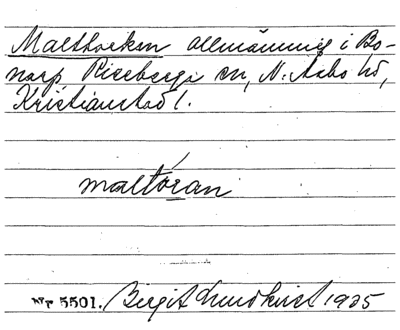 Malthorken allmänning i Bo-
narp Riseberga sn, N. Åsbo hd,
Kristianstad l.
maltóran
Nr 5501. Birgit Lundkvist 1925